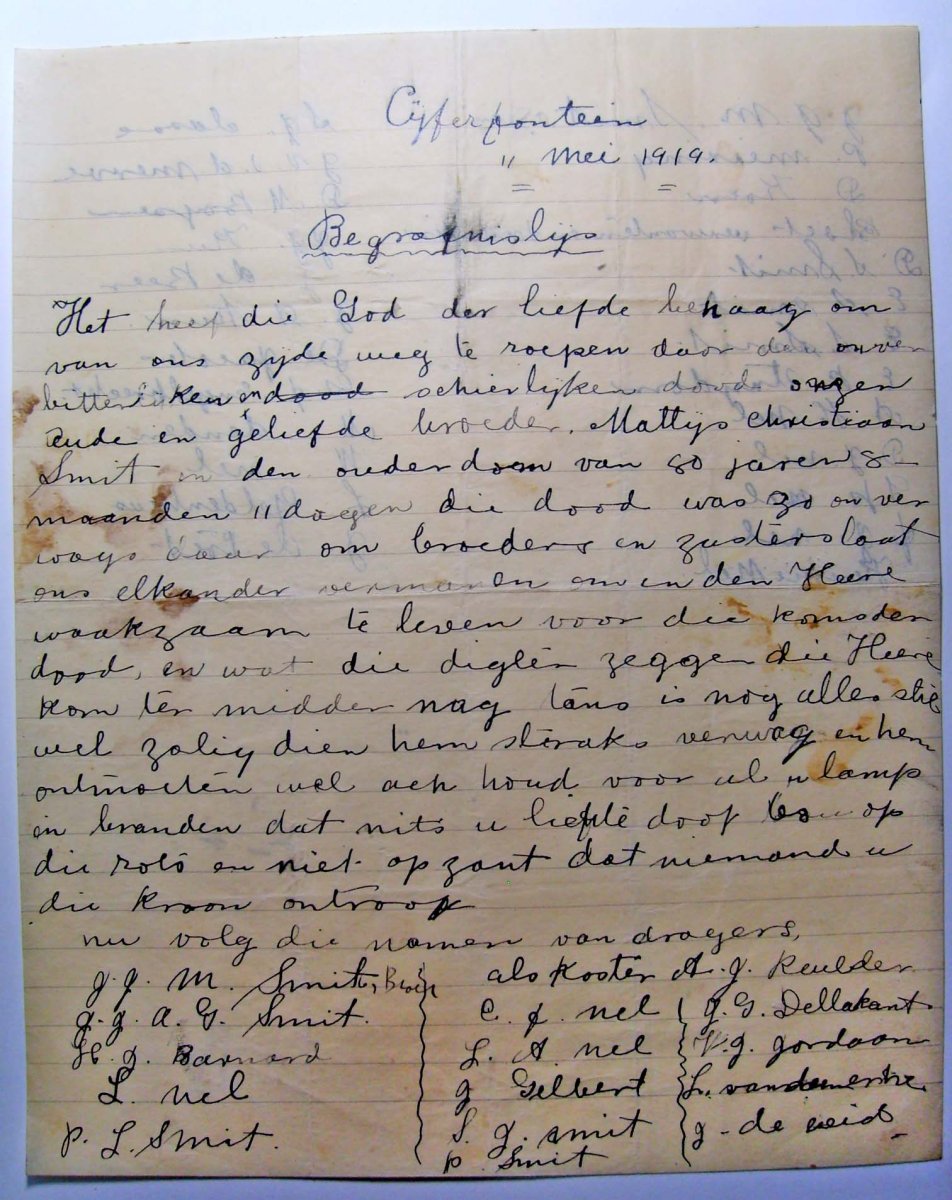 Cÿferfontein
" Mei 1919.
Begrafnislijs
Het heef die God der liefde behaag om
van ons zyde weg te roepen daar den onver
bitterliken en dood schierlijken dood onzen
aude en geliefde broeder. Mattijs Christiaan
Smit in den ouderdom van 80 jaren 8 –
maanden 11 dagen die dood was zo onver
wags daar om broeders en zusters laat
ons elkander vermanen om in den Heere
waakzaam te leven voor die komsden
dood, en wat die digter zeggen die Heere
kom ter midder nag tans is nog alles stil
wel zalig dien hem straks verwag en hem
ontmoeten wel ach houd voor al u lamp
in branden dat nits u liefde doof bou op
die rots en niet op zant dat niemand u
die kroon ontroof
nu volg die namen van dragers,
g. g. M. Smit, als Koster A. g. Keulder
g. g. A. G. Smit. C. J. nel g. G. Dellakant
H. g. Barnard L. A nel W. g. gordaan
L. nel g Gelbert L. vandemerwe
P. L. Smit. S. g. smit g - de
P. Smit